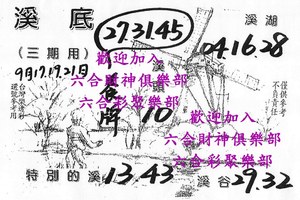 溪底
27.31.45
溪湖
04.16.28
(三期用)
99年17.19.21日
歡迎加入
六合財神俱樂部
六合彩聚樂部
10
歡迎加入
六合財神俱樂部
六合彩聚樂部
僅供參考
不負責任
特別的溪
13.43
溪谷
29.32